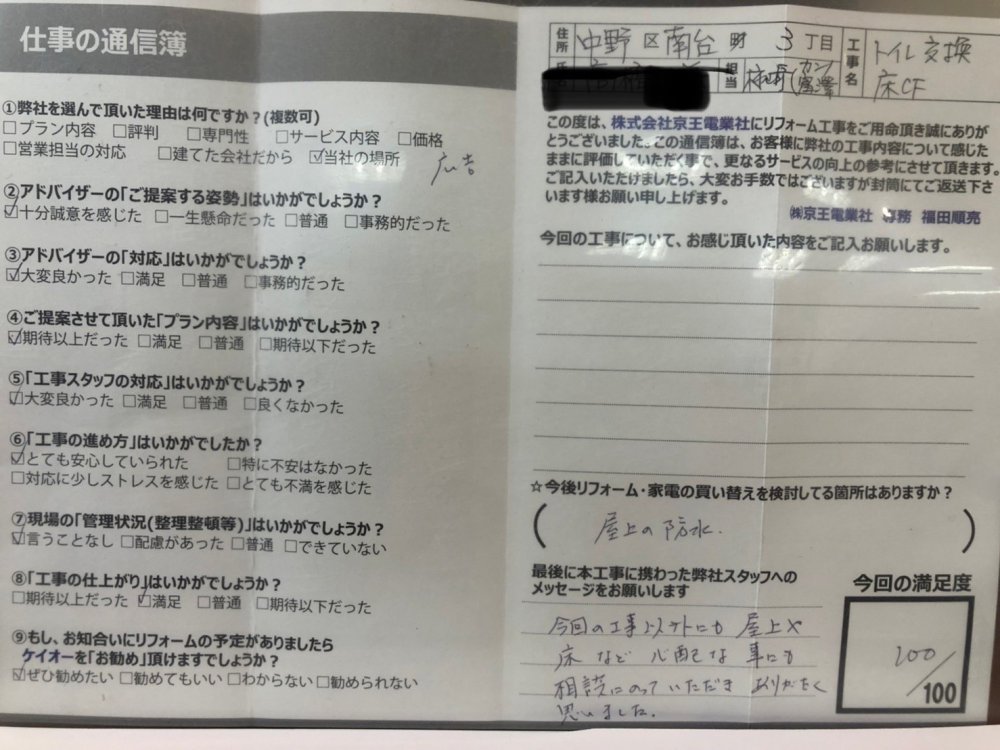 仕事の通信簿
①弊社を選んで頂いた理由は何ですか？(複数可)
□プラン内容 □評判 □専門性 □サービス内容 □価格
□営業担当の対応 □建てた会社だから ☑当社の場所 広告
②アドバイザーの「ご提案する姿勢」はいかがでしょうか？
☑十分誠意を感じた □一生懸命だった □普通 □事務的だった
③アドバイザーの「対応」はいかがでしょうか？
☑大変良かった □満足 □普通 □事務的だった
④ご提案させて頂いた「プラン内容」はいかがでしょうか？
☑期待以上だった □満足 □普通 □期待以下だった
⑤「工事スタッフの対応」はいかがでしょうか？
☑大変良かった □満足 □普通 □良くなかった
⑥「工事の進め方」はいかがでしたか？
☑とても安心していられた □特に不安はなかった
□対応に少しストレスを感じた □とても不満を感じた
⑦現場の「管理状況(整理整頓等)」はいかがでしょうか？
☑言うことなし □配慮があった □普通 □できていない
⑧「工事の仕上がり」はいかがでしょうか？
□期待以上だった ☑満足 □普通 □期待以下だった
⑨もし、お知合いにリフォームの予定がありましたら
ケイオーを「お勧め」頂けますでしょうか？
☑ぜひ勧めたい □勧めてもいい □わからない □勧められない
住所 中野区南台町 3丁目
担当
工事名 トイレ交換
床CF
この度は、株式会社京王電業社にリフォーム工事をご用命頂き誠にありが
とうございました。この通信簿は、お客様に弊社の工事内容について感じた
ままに評価していただく事で、更なるサービスの向上の参考にさせて頂きます。
ご記入いただけましたら、大変お手数ではございますが封筒にてご返送下さ
います様お願い申し上げます。
㈱京王電業社 専務 福田順亮
今回の工事について、お感じ頂いた内容をご記入お願いします。
☆今後リフォーム・家電の買い替えを検討してる箇所はありますか？
(屋上の防水.)
最後に本工事に携わった弊社スタッフへの
メッセージをお願いします
今回の工事以外にも 屋上や
床など 心配な 事にも
相談にのっていただき ありがたく
思いました.
今回の満足度
100/100